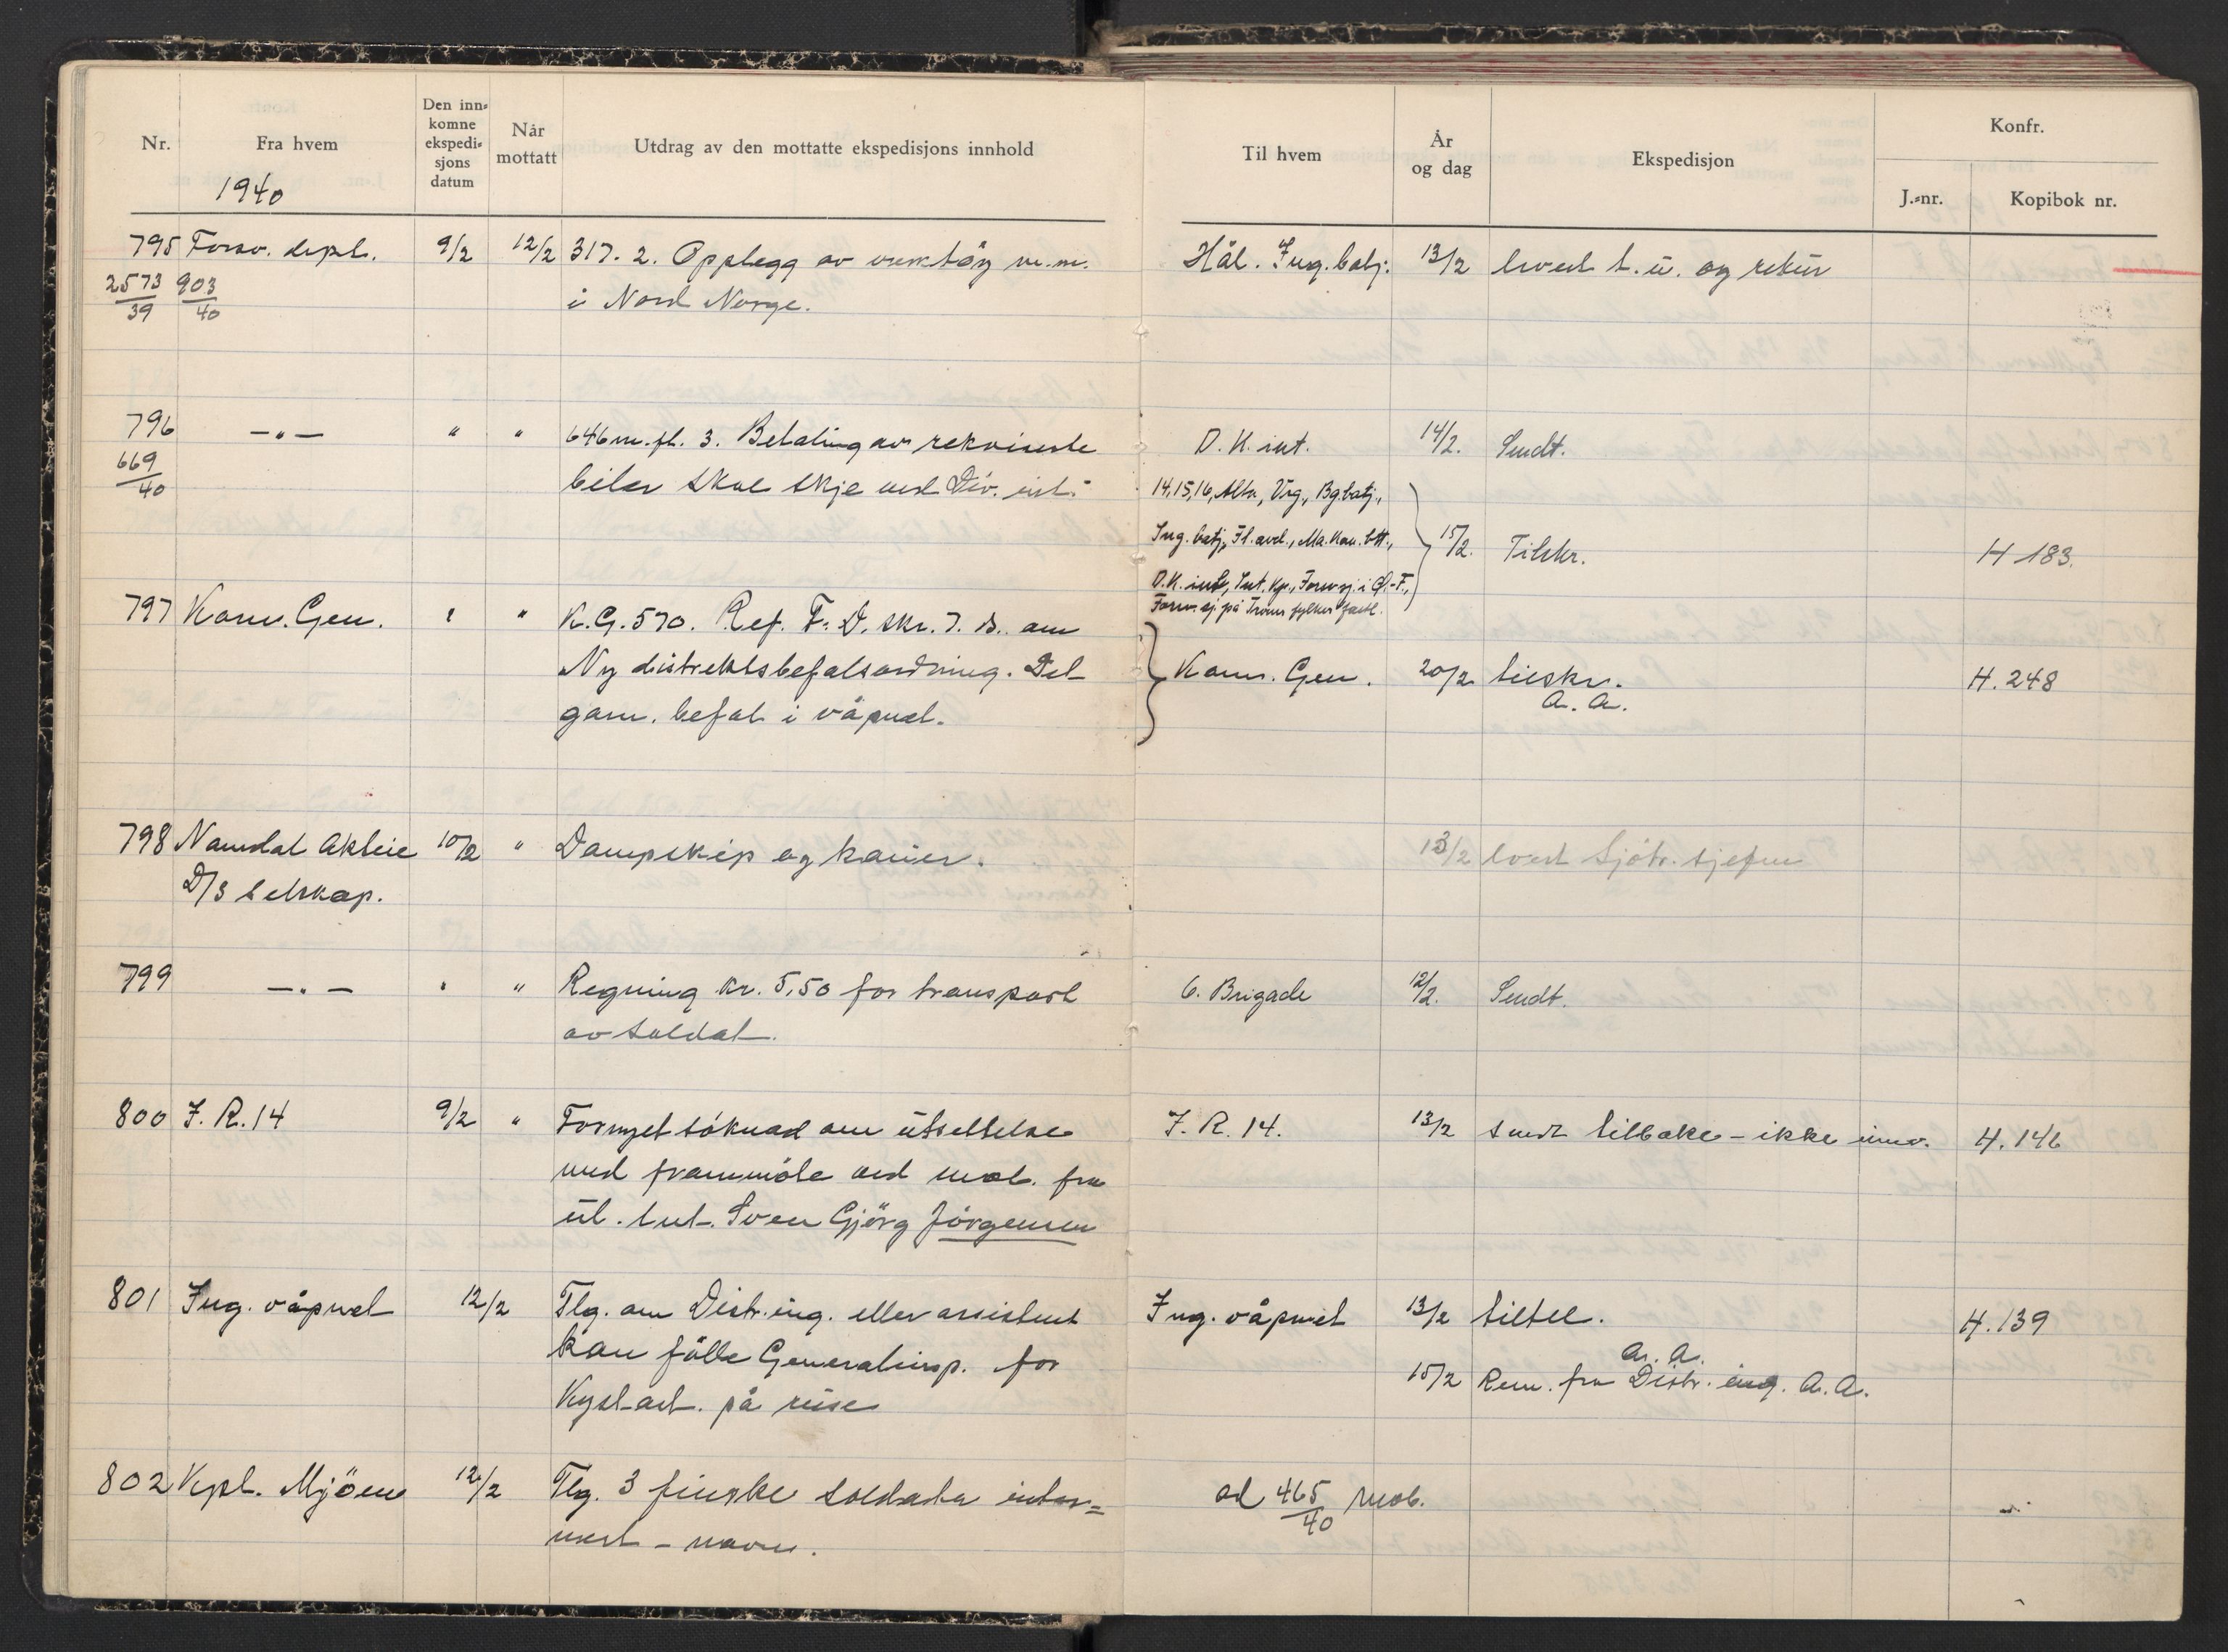 Nr.
Fra hvem
1940
Den inn-
komne
ekspedi-
sjons
datum
Når
mottatt
Utdrag av den mottatte ekspedisjons innhold
Til hvem
År
og dag
Ekspedisjon
Konfr.
J.-nr.
Kopibok nr.
795 Forsv. dept. 9/2 12/2 317. 2. Opplegg av verktøy m.m.
2573/39 903/40 i Nord Norge.
Hål. Ing. batj. 13/2 t.u. og retur
796 —"— " " 646 m. fl. 3. Betaling av rekvirerte
669/40 biler skal skje ved Div. int.
D. K. int. 14/2. Sendt.
14, 15, 16, Alta, Vrg., Bg.batj.,
Ing. batj., Fl. avd., Ma. Kan. btt., 15/2. Tilskr. H 183.
D.K. int., Int. kp., Forv. sj. i
Forv. sj. på Troms fylkes
797 Kom. Gen. " " K.G. 570. Ref. F. D. skr. 7. ds. om
Ny distriktsbefalsordning. Det
gam. befal i våpnet.
Kom. Gen. 20/2 tilskr. H. 248
A. A.
798 Namdal Aktie 10/2 " Dampskip og kaier.
D/S selskap.
13/2 Sjötr. sjefen
799 —"— " " Regning kr. 5,50 for transport
av soldat.
6. Brigade 12/2. Sendt.
800 I. R. 14 9/2 " Fornyet söknad om utsettelse
med frammöte ved mob. fra
Sven Gjörg Jörgensen
I. R. 14. 13/2 sendt tilbake – ikke innv. H. 146
801 Ing. våpnet 12/2 Tlg. om Distr. ing. eller assistent
kan fölle Generalinsp. for
Kystart. på reise
Ing. våpnet 13/2 tiltel. H. 139
A. A.
15/2 Rem. fra Distr. ing. A. A.
802 Kpt. Mjöen 12/2 Tlg. 3 finske soldater inter=
nert – navn.
ad 465/40 mob.